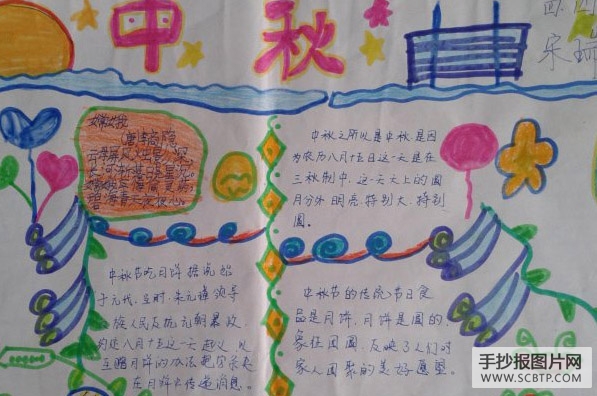 中秋
四
宋瑞
嫦娥
(唐李商隐
中秋之所以是中秋.是因
为农历八月十五日这一天是在
三秋制中.这一天天上的圆
月分外明亮.特别大.特别
圆。
中秋节吃月饼据说始
于元代.当时.朱元璋领导
族人民反抗元朝暴政.
约定八月十五这一天起义.以
互赠月饼的办法把字条夹
在月饼中传递消息。
中秋节的传统节日食
品是月饼,月饼是圆的,
象征团圆,反映了人们对
家人团聚的美好愿望。
手抄报图片网
WWW.SCBTP.COM